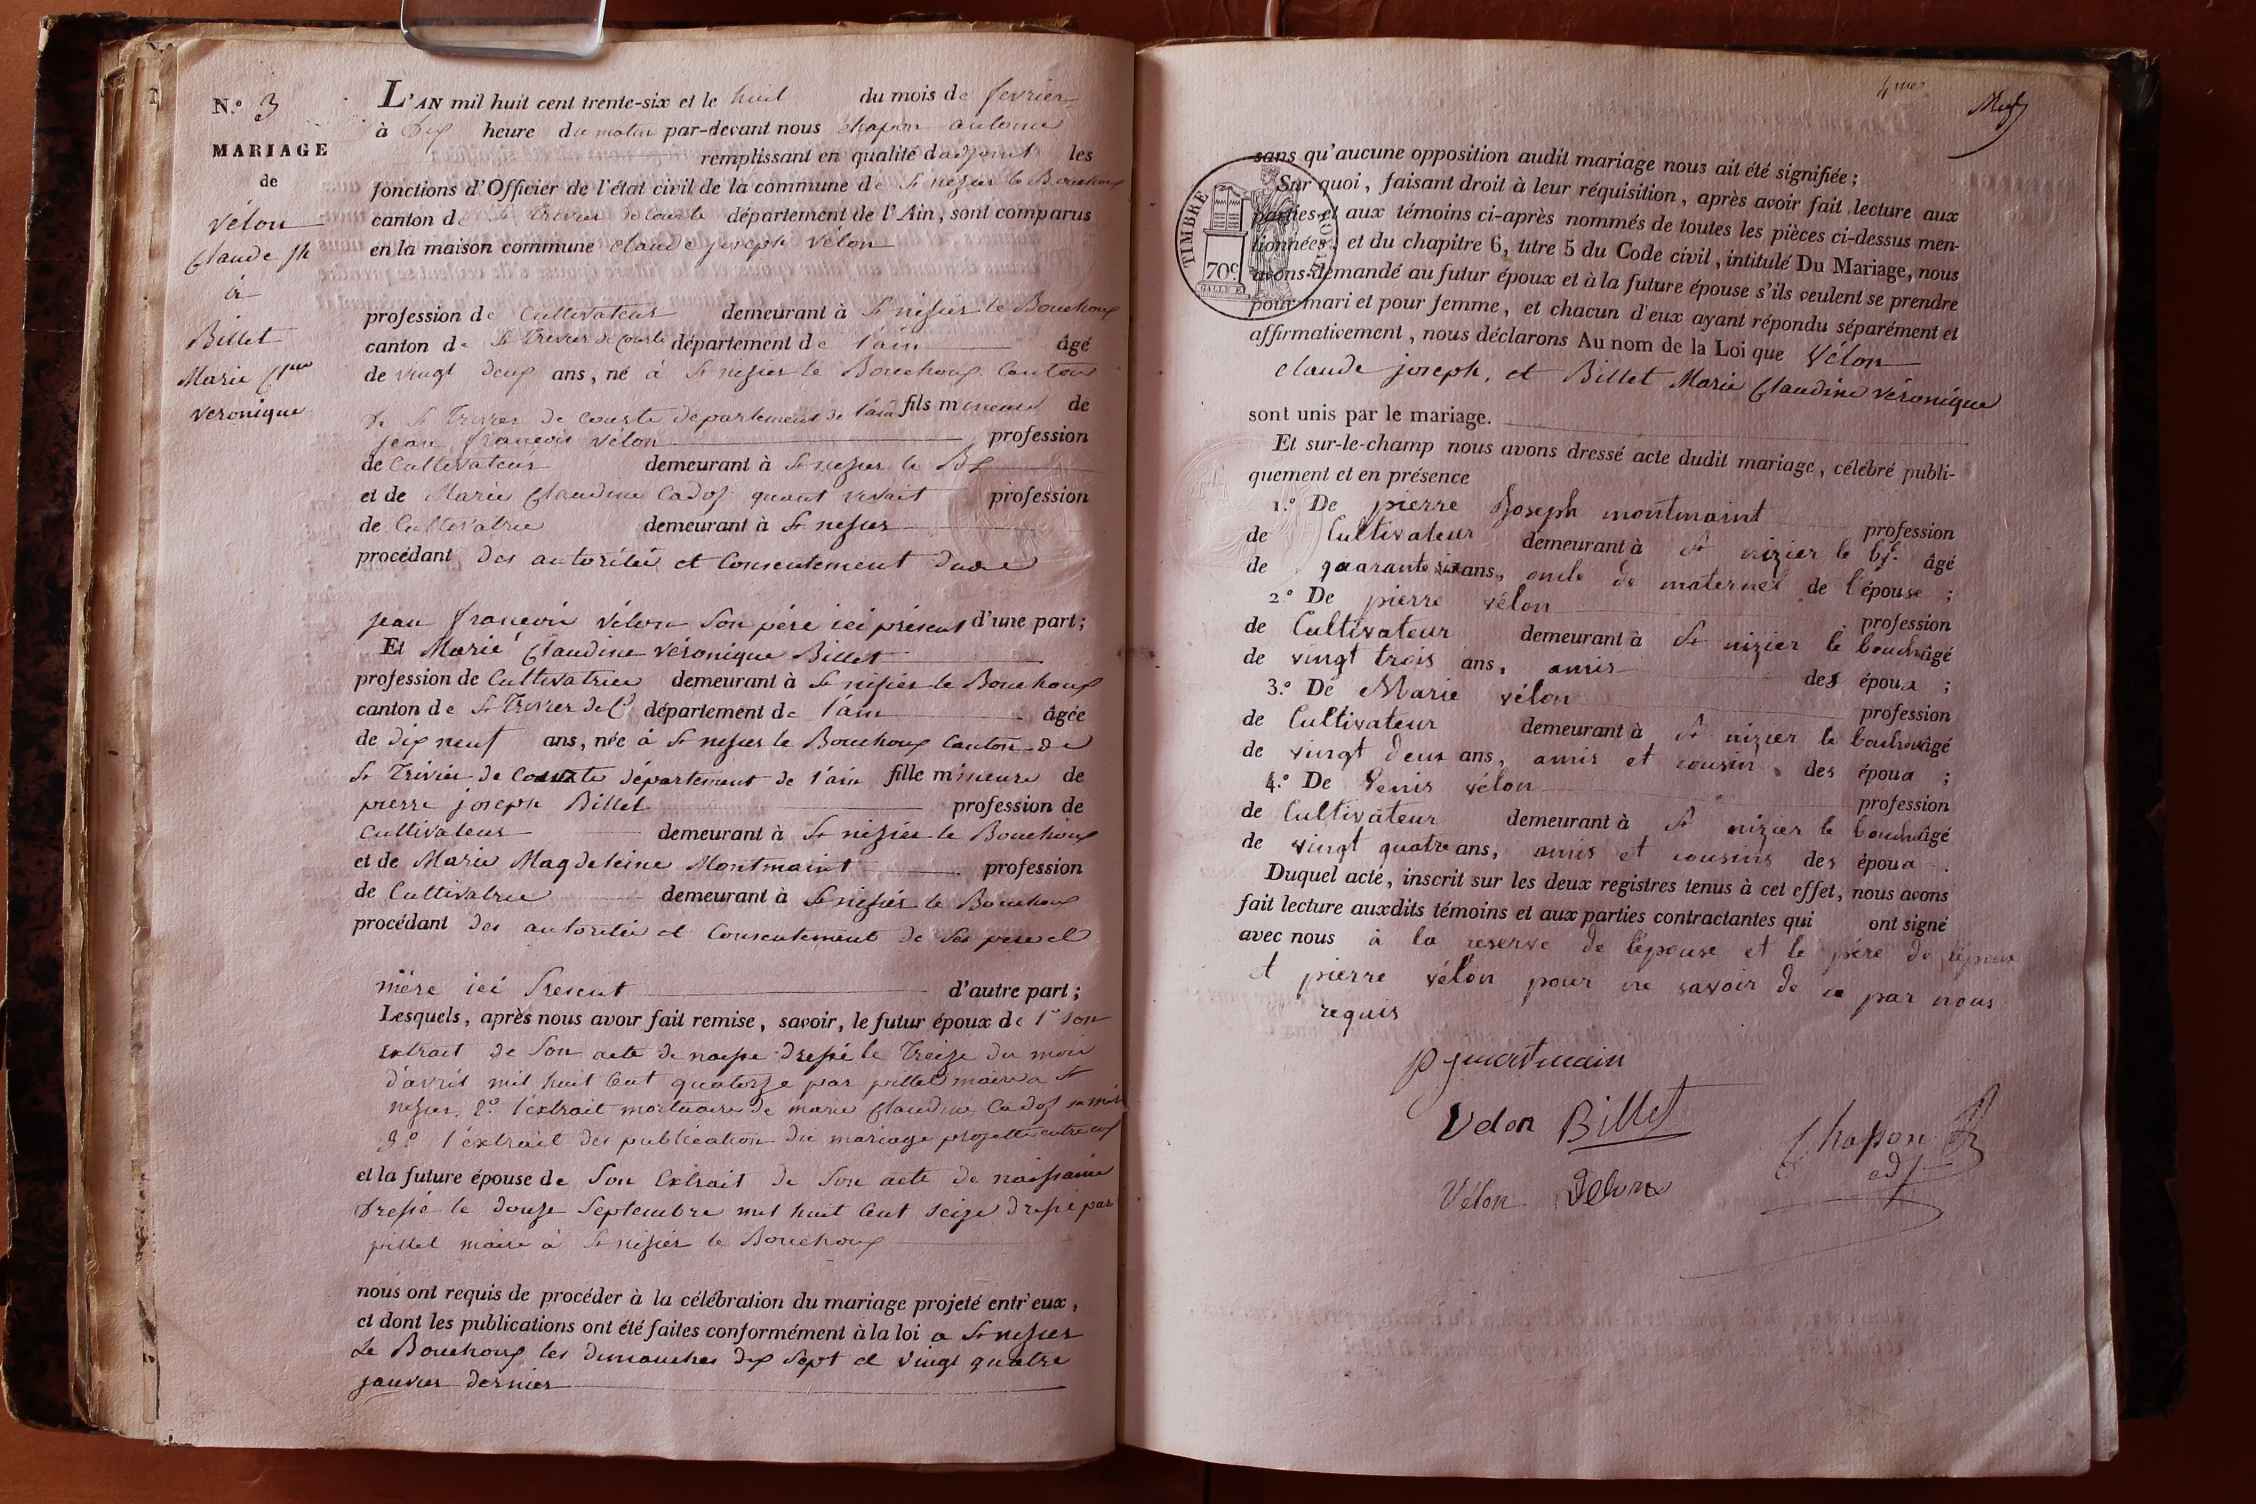 N.o 3
MARIAGE
de
Vélon
Claude Jh
à
Billet
Marie Cine
veronique
L'AN mil huit cent trente-six et le huit du mois de fevrier
à Dix heure du matin par-devant nous chapon antoine
remplissant en qualité d'adjoint les
fonctions d'Officier de l'état civil de la commune de St nizier le Bouchoux
canton de St Trivier de Courte département de l'Ain, sont comparus
en la maison commune Claude joseph Vélon
profession de Cultivateur demeurant à St nizier le Bouchoux
canton de St Trivier de Courte département de l'ain âgé
de vingt deux ans, né à St nizier le Bouchoux Canton
de St Trivier de Courte département de l'ain fils mineur de
jean françois Vélon profession
de Cultivateur demeurant à St nizier le Bx
et de Marie Claudine Cadoz quant vivait profession
de Cultivatrice demeurant à St nizier
procédant des autorités et Consentement dudit
jean françois Vélon Son père ici présent d'une part;
Et Marie Claudine Véronique Billet
profession de Cultivatrice demeurant à St nizier le Bouchoux
canton de St Trivier de C. département de l'ain âgée
de dix neuf ans, née à St nizier le Bouchoux Canton de
St Trivier de Courte département de l'ain fille mineure de
pierre joseph Billet profession de
Cultivateur demeurant à St nizier le Bouchoux
et de Marie Magdeleine Montmaint profession
de Cultivatrice demeurant à St nizier le Bouchoux
procédant des autorités et Consentement de Ses pere et
mère ici Present d'autre part;
Lesquels, après nous avoir fait remise, savoir, le futur époux de 1° Son
Extrait de Son acte de naisse dressé le Treize du mois
d'avril mil huit Cent quatorze par pillet maire a St
nizier. 2.° l'extrait mortuaire de marie Claudine Cadoz sa mère
3.° l'éxtrait des publication du mariage projetté entre eux
et la future épouse de Son Extrait de Son acte de naissance
Dressé le douze Septembre mil huit Cent seize dressé par
pillet maire à St nizier le Bouchoux
nous ont requis de procéder à la célébration du mariage projeté entr'eux,
et dont les publications ont été faites conformément à la loi a St nizier
Le Bouchoux les dimanches dix Sept et vingt quatre
janvier dernier
4me
TIMBRE ROYAL
70c
sans qu'aucune opposition audit mariage nous ait été signifiée;
Sur quoi, faisant droit à leur réquisition, après avoir fait lecture aux
parties et aux témoins ci-après nommés de toutes les pièces ci-dessus men-
tionnées, et du chapitre 6, titre 5 du Code civil, intitulé Du Mariage, nous
avons demandé au futur époux et à la future épouse s'ils veulent se prendre
pour mari et pour femme, et chacun d'eux ayant répondu séparément et
affirmativement, nous déclarons Au nom de la Loi que Vélon
Claude joseph, et Billet Marie Claudine véronique
sont unis par le mariage.
Et sur-le-champ nous avons dressé acte dudit mariage, célébré publi-
quement et en présence
1.° De pierre Joseph montmaint profession
de Cultivateur demeurant à St nizier le bx. âgé
de quarante six ans, oncle de maternel de l'épouse ;
2.° De pierre vélon profession
de Cultivateur demeurant à St nizier le bouchx âgé
de vingt trois ans, amis des époux ;
3.° De Marie vélon profession
de Cultivateur demeurant à St nizier le bouchx âgé
de vingt deux ans, amis et cousin des époux ;
4.° De Denis vélon profession
de Cultivateur demeurant à St nizier le bouchx âgé
de vingt quatre ans, amis et cousins des époux .
Duquel acte, inscrit sur les deux registres tenus à cet effet, nous avons
fait lecture auxdits témoins et aux parties contractantes qui ont signé
avec nous à la reserve de l'épouse et le père de l'époux
et pierre vélon pour ne savoir de ce par nous
requis
p j montmain
Velon Billet
Chapon
adj
Vélon Velon